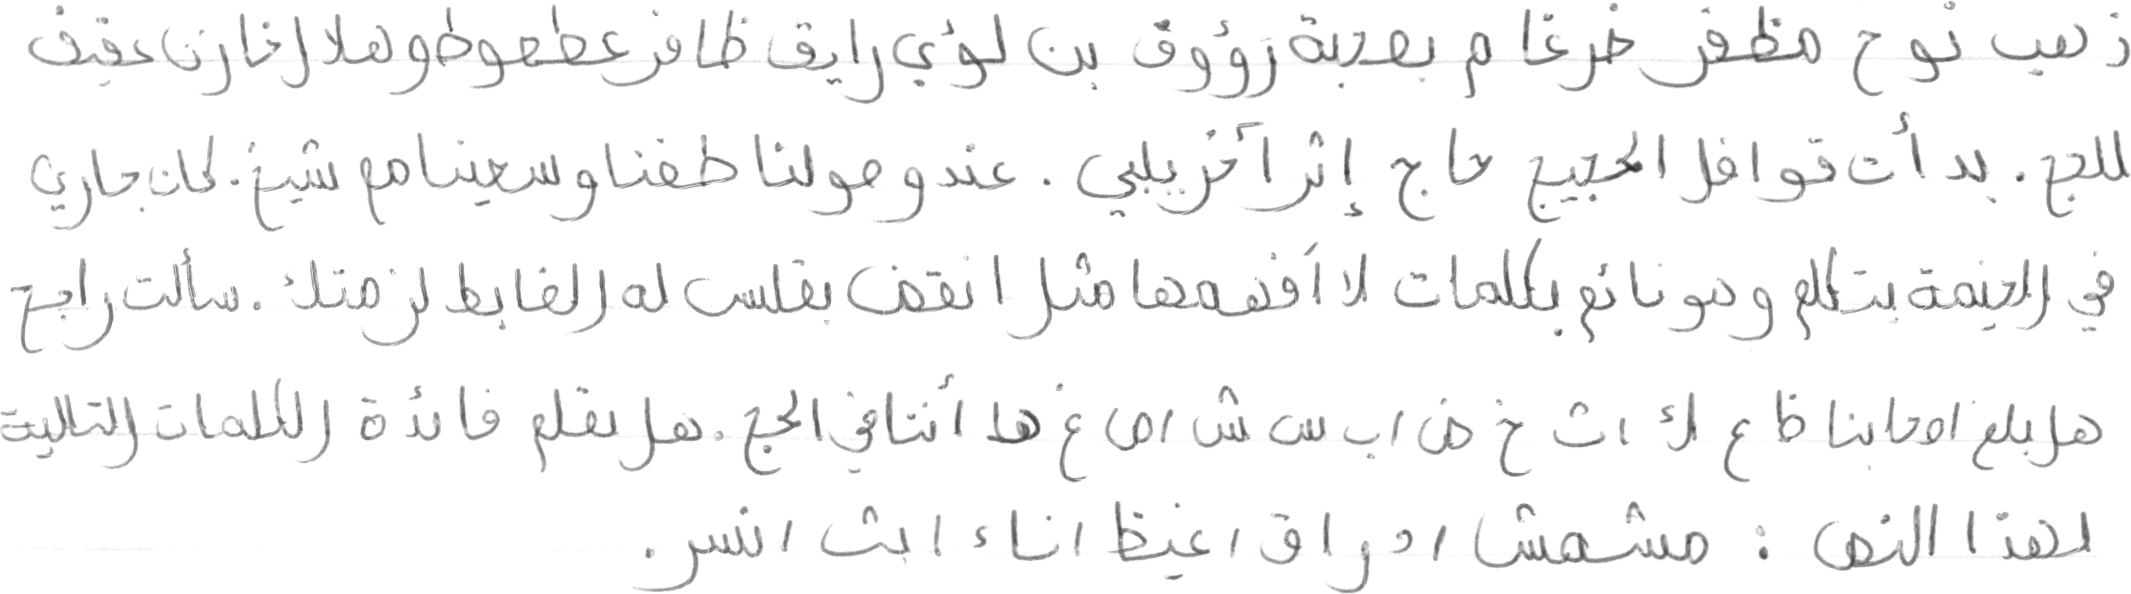 ذهب نوح مظفر ضرغام بصحبة رؤوف بن لؤي رايق ظافر عطعوط وهلال غازي عفيف
للحج. بدأت قوافل الحجيج حاج إثر آخر يلبي. عند وصولنا طفنا وسعينا مع شيخ. كان جاري
في الخيمة يتكلم وهو نائم بكلمات لا أفهمها مثل انقض بقلس له الغابط لز متك. سألت راجح
هل بلغ اصحابنا ظ ع ك اث خ ض اب س ش اص غ ها أنتا في الحج. هل تعلم فائدة الكلمات التالية
لهذا النص : مشمش ادراق اغيظ اناء ابث انسر.